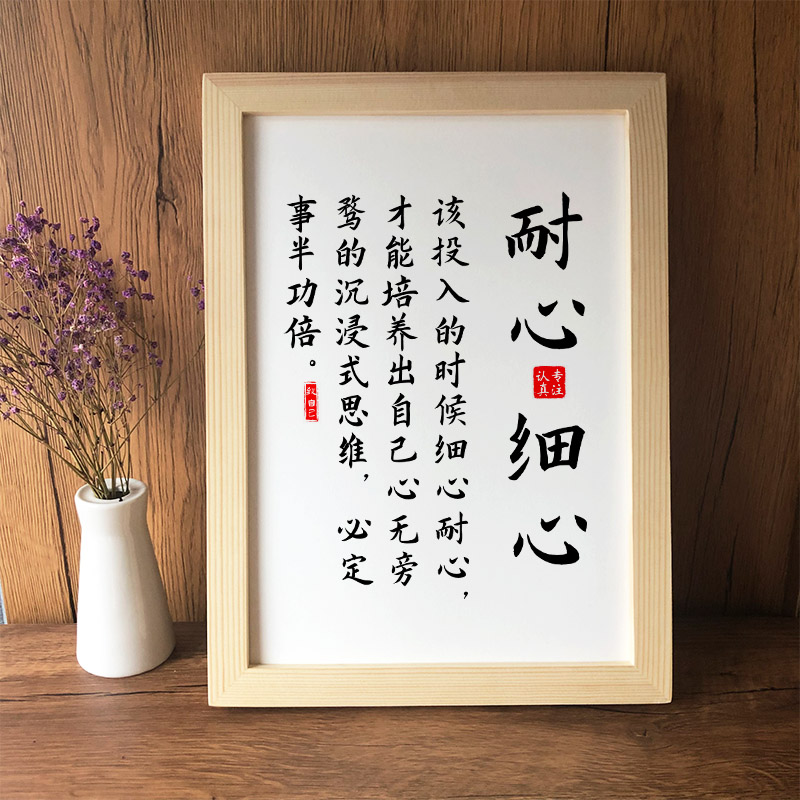 耐心
专注
认真
细心
该投入的时候细心耐心，
才能培养出自己心无旁
骛的沉浸式思维，必定
事半功倍。
致自己